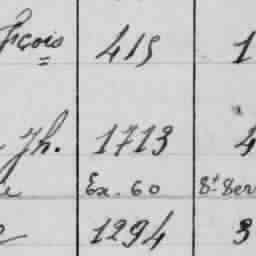 fçois 415 1
Jh. 1713 4
Ex. 60 8t Ser
1294 3